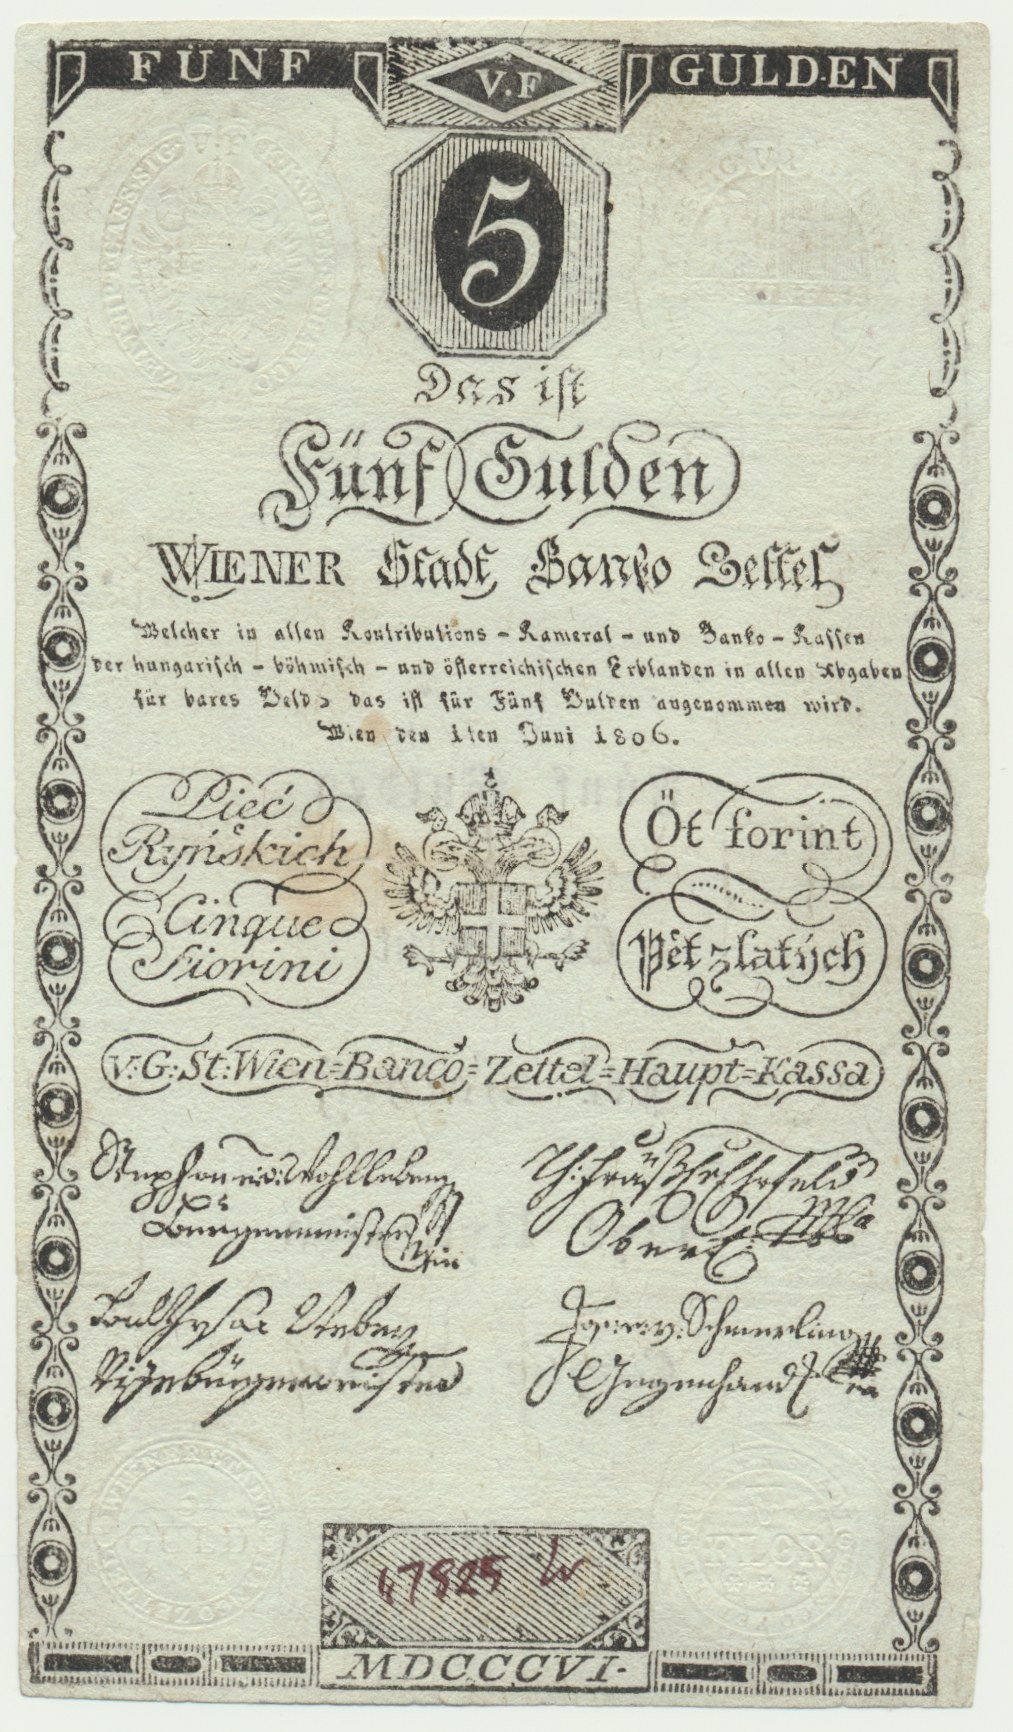 FÜNF V.F GULDEN
5
Das ist
Fünf Gulden
WIENER Stadt Banko Zettel
Welcher in allen Kontributions - Kameral - und Banko - Kassen
der hungarisch - böhmisch - und österreichischen Erblanden in allen Abgaben
für bares Geld, das ist für Fünf Gulden angenommen wird.
Wien den 1ten Juni 1806.
Pieć
Ryńskich
Cinque
Fiorini
Öt forint
Pět zlatých
V:G:St:Wien=Banco=Zettel=Haupt=Kassa
Stephan v: Wohlleben
Burgermeister
Wien
Vizebürgermeister
Schmerling
Gegenhandl
GULD
CR
67825
MDCCCVI.